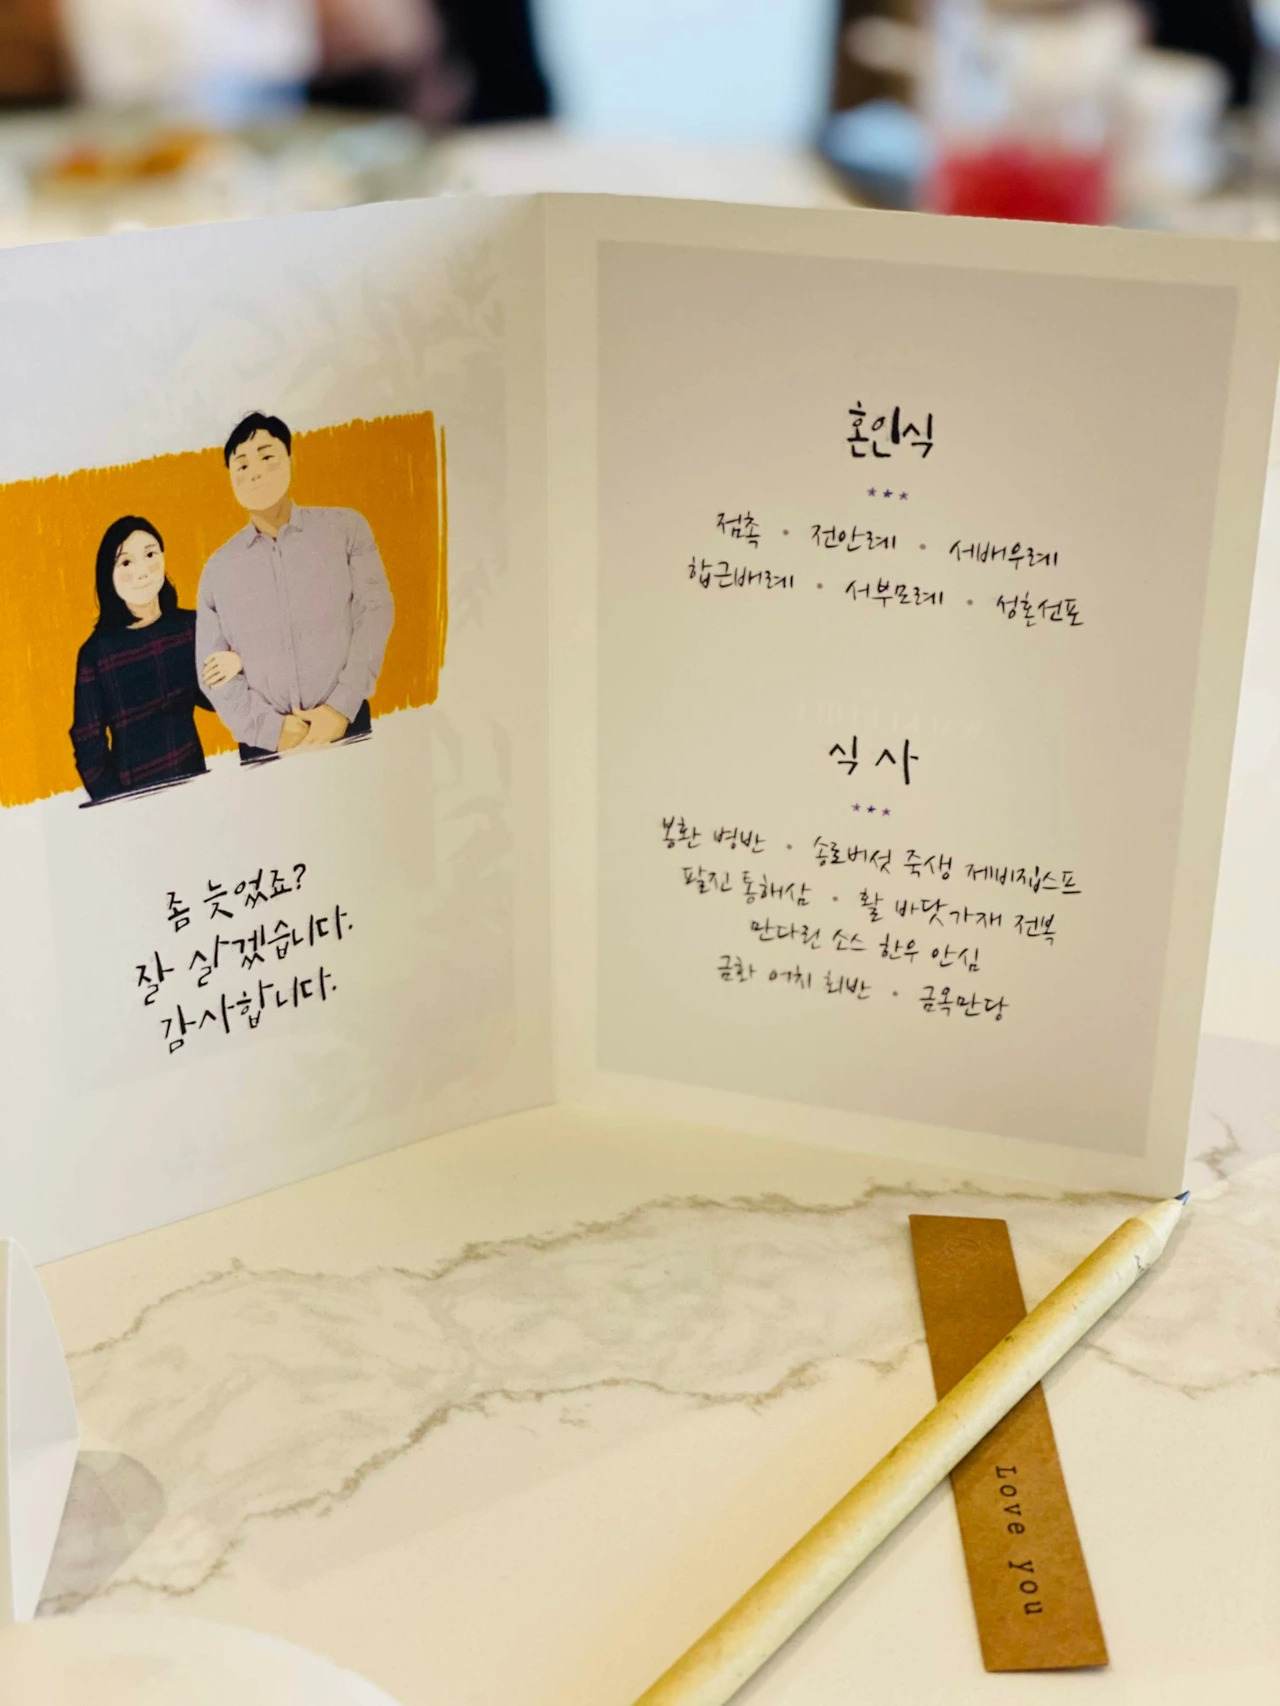 좀 늦었죠?
잘 살겠습니다.
감사합니다.
혼인식
***
점촉 • 전안례 • 서배우례
합근배례 • 서부모례 • 성혼선포
식사
***
봉환 병반 • 송로버섯 죽생 제비집스프
팔진 통해삼 • 활 바닷가재 전복
만다린 소스 한우 안심
금화 어치 회반 • 금옥만당
Love you